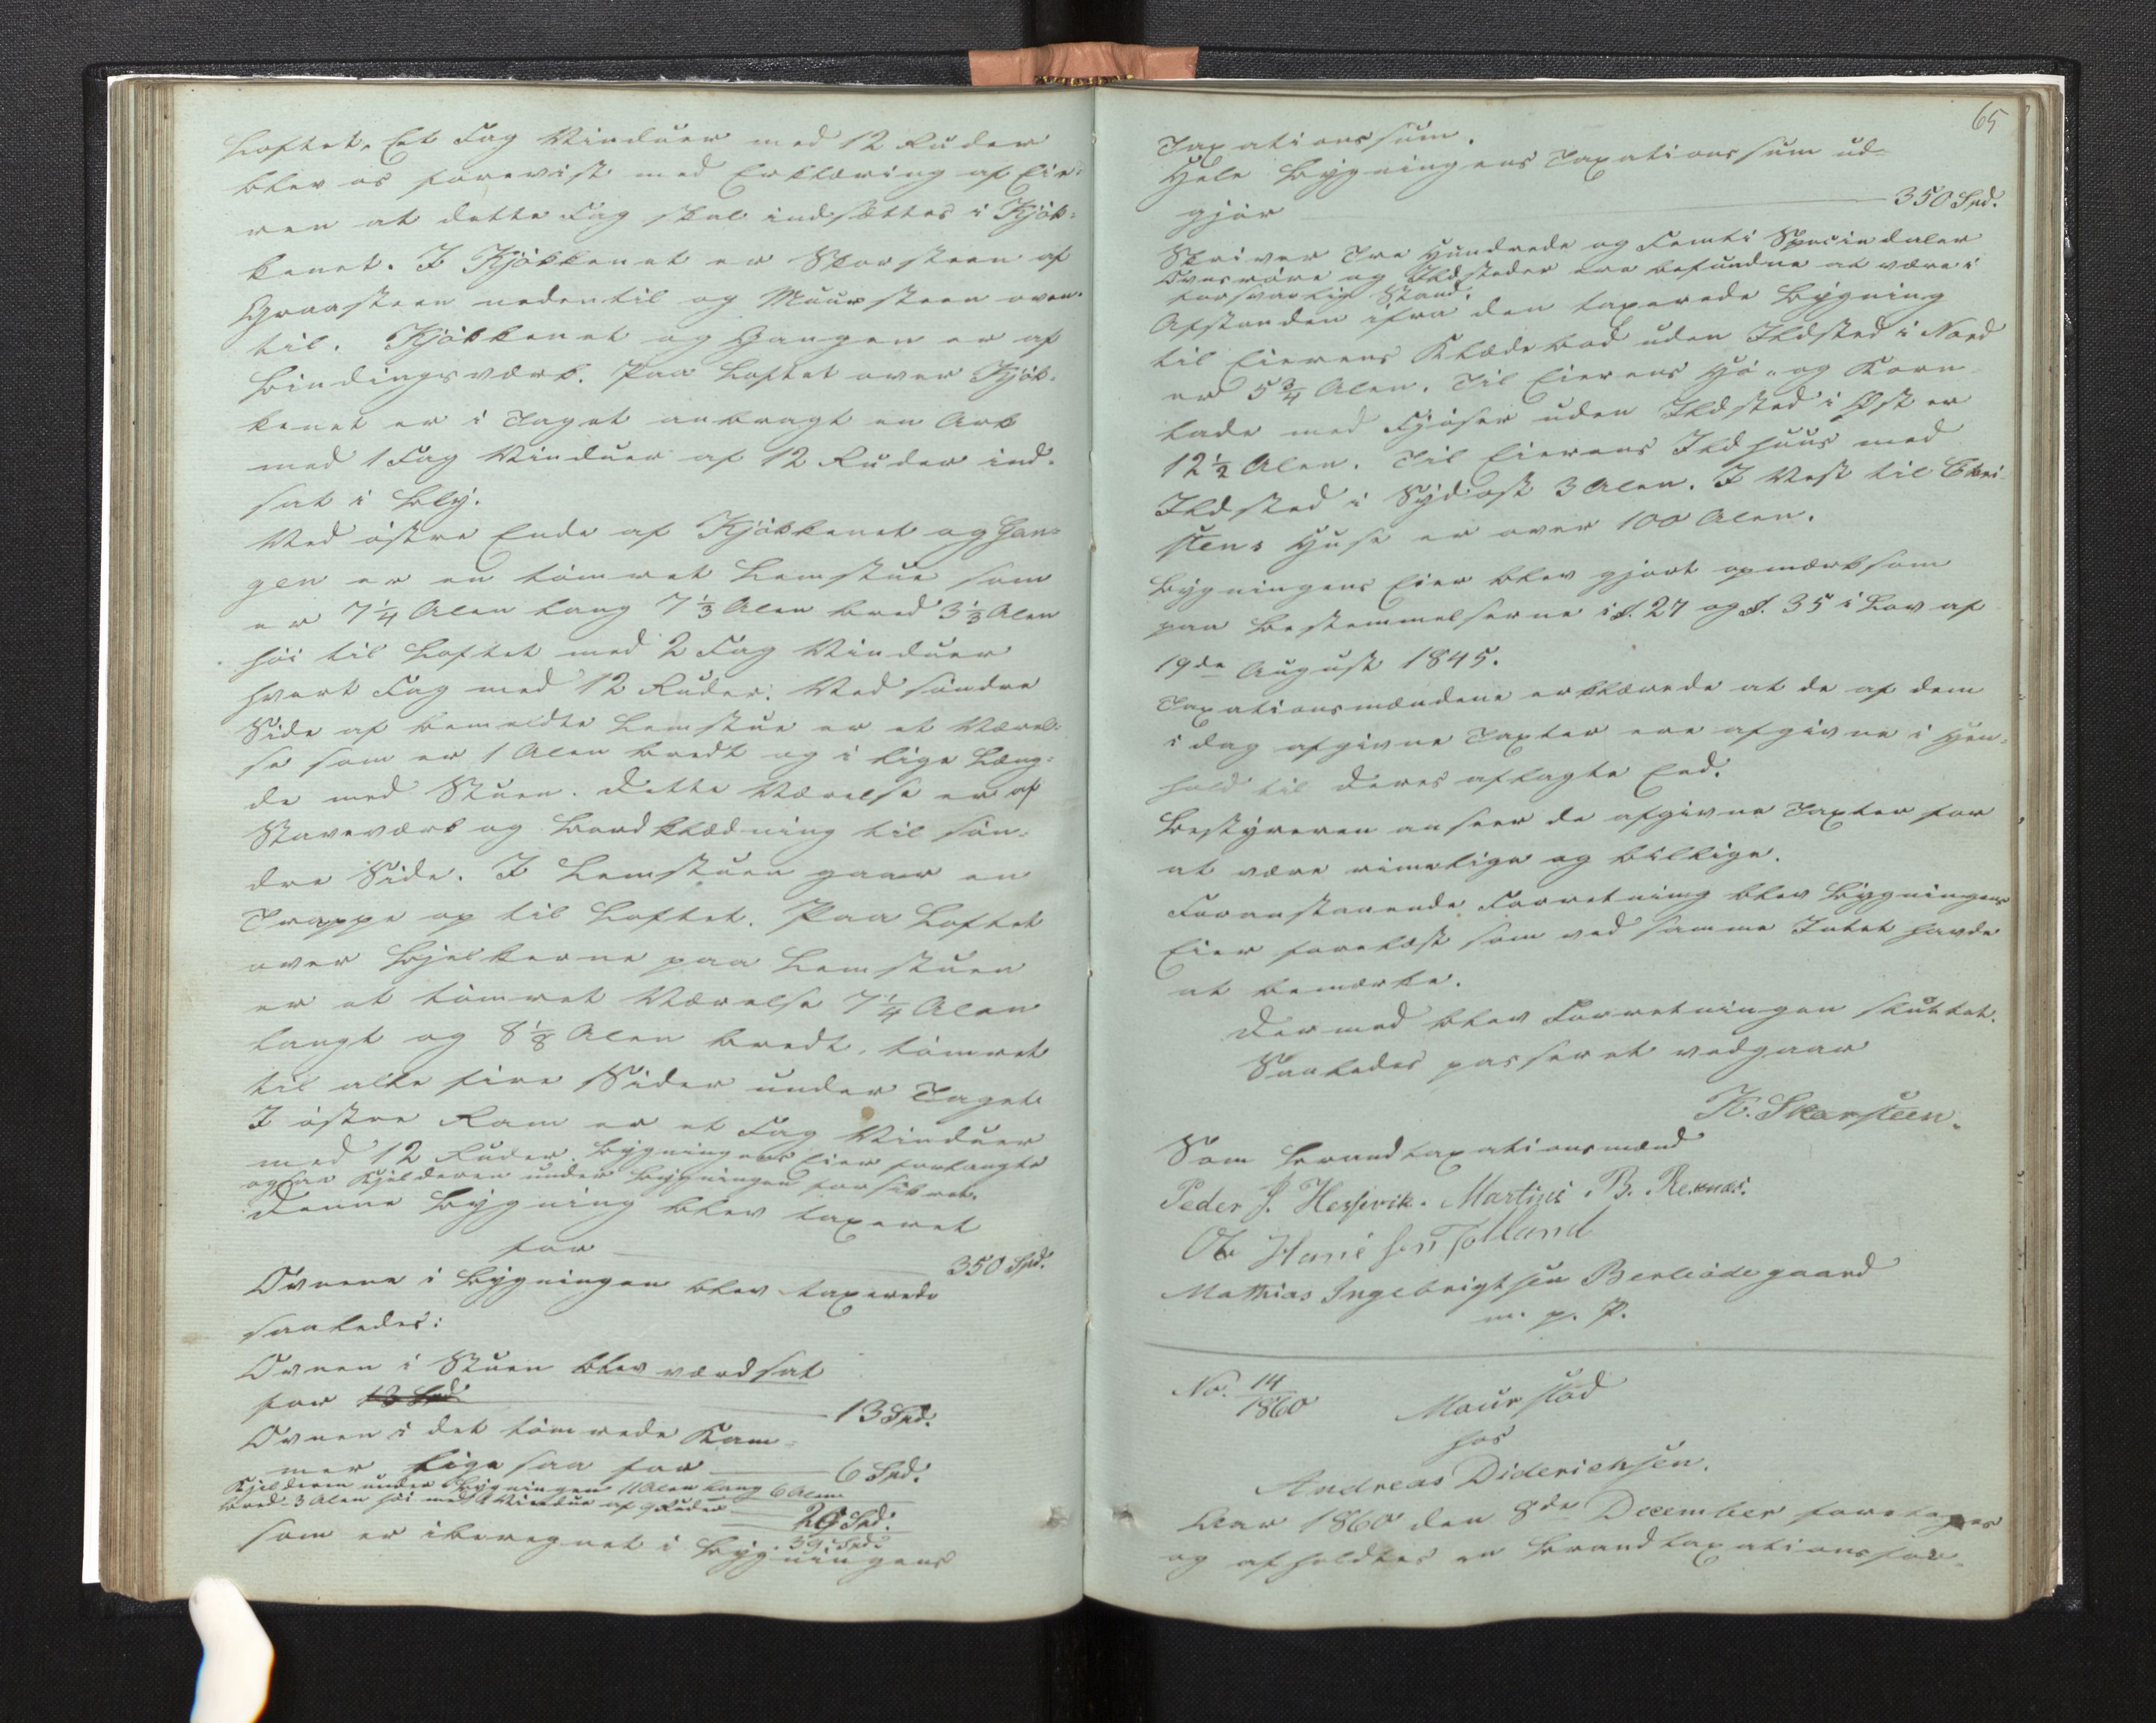 Loftet. Et Fag Vinduer med 12 Ruder
blev os forevist med Erklæring af Eie-
ren at dette Fag skal indsættes i Kjøk-
kenet. I Kjøkkenet er Skorsteen af
Graasteen nedentil og Muursteen oven-
til. Kjøkkenet og Gangen er af
Bindingsværk. Paa Loftet over Kjøk-
kenet er i Taget anbragt en Ark
med 1 Fag Vinduer af 12 Ruder ind-
sat i Bly.
Ved østre Ende af Kjøkkenet og Gan-
gen er en tømret Lemstue som
er 7 1/4 Alen lang 7 1/3 Alen bred 3 1/3 Alen
høi til Loftet med 2 Fag Vinduer
hvert Fag med 12 Ruder. Ved søndre
Side af bemeldte Lemstue er et Værel-
se som er 1 Alen bredt og i lige Læng-
de med Stuen. Dette Værelse er af
Staveværk og Bordklædning til søn-
dre Side. I Lemstuen gaar en
Trappe op til Loftet. Paa Loftet
over Bjelkerne paa Lemstuen
er et tømret Værelse 7 1/4 Alen
langt og 8 1/8 Alen bredt, tømret
til alle fire Sider under Taget
I østre Ram er et Fag Vinduer
med 12 Ruder. Bygningens Eier forlangte
ogsaa Kjelderen under Bygningen forsikret.
Denne Bygning blev taxeret
for 350 Spd.
Ovnene i Bygningen blev taxerede
saaledes:
Ovnen i Stuen blev værdsat
for 13 Spd. 13 Spd.
Ovnen i det tømrede Kam-
mer ligesaa for 6 Spd.
Kjelderen under Bygningen 11 Alen lang 6 Alen
bred 3 Alen høi med 1 Vindue af 9 Ruder 20 Spd.
39 Spd.
som er iberegnet i Bygningens
65
Taxationssum.
Hele Bygningens Taxationssum ud-
gjør 350 Spd.
Skriver Tre Hundrede og Femti Speciedaler
Ovnsrøre og Ildsteder ere befundne at være i
forsvarlig Stand.
Afstanden ifra den taxerede Bygning
til Eierens Klædebod uden Ildsted i Nord
er 5 3/4 Alen. Til Eierens Hø- og Korn-
lade med Fjøser uden Ildsted i Øst er
12 1/2 Alen. Til Eierens Ildhuus med
Ildsted i Sydost 3 Alen. I Vest til
Huse er over 100 Alen.
Bygningens Eier blev gjort opmærksom
paa Bestemmelserne i §. 27 og §. 35 i Lov af
19de August 1845.
Taxationsmændene erklærede at de af dem
i dag afgivne Taxter ere afgivne i Hen-
hold til deres aflagte Eed.
Bestyreren anseer de afgivne Taxter for
at være rimelige og billige.
Foranstaaende Forretning blev Bygningens
Eier forelæst som ved samme Intet havde
at bemærke.
Dermed blev Forretningen sluttet.
Saaledes passeret vedgaar
K. Skarsteen.
Som Brandtaxationsmænd
Peder J. Hessevik. Martinus B.
Ole Hansen
Mathias Ingebrigtsen
m. p. P.
No. 14/1860
Maurstad
hos
Andreas Diderichsen.
Aar 1860 den 8de December foretoges
og afholdtes en Brandtaxationsfor-